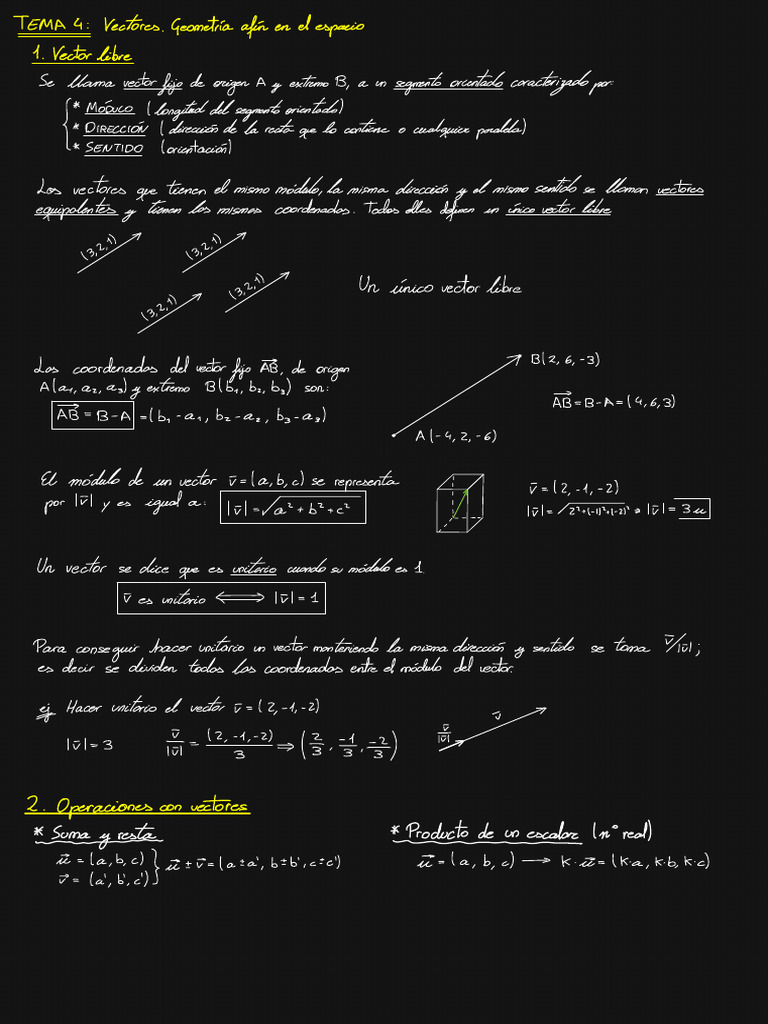 TEMA 4: Vectores. Geometría afín en el espacio
1. Vector libre
Se llama vector fijo de origen A y extremo B, a un segmento orientado caracterizado por:
* MÓDULO (longitud del segmento orientado)
* DIRECCIÓN (dirección de la recta que lo contiene o cualquier paralela)
* SENTIDO (orientación)
Los vectores que tienen el mismo módulo, la misma dirección y el mismo sentido se llaman vectores
equipolentes y tienen las mismas coordenadas. Todos ellos definen un único vector libre
(3,2,1)
(3,2,1)
(3,2,1)
(3,2,1)
Un único vector libre
Las coordenadas del vector fijo AB⃗, de origen
A(a₁, a₂, a₃) y extremo B(b₁, b₂, b₃) son:
AB⃗ = B-A = (b₁-a₁, b₂-a₂, b₃-a₃)
B(2, 6, -3)
AB⃗ = B-A = (4,6,3)
A(-4, 2, -6)
El módulo de un vector v̄=(a,b,c) se representa
por |v̄| y es igual a: |v̄|=√a²+b²+c²
v̄=(2,-1,-2)
|v̄|=√2²+(-1)²+(-2)² → |v̄|=3u
Un vector se dice que es unitario cuando su módulo es 1.
v̄ es unitario ⟺ |v̄|=1
Para conseguir hacer unitario un vector manteniendo la misma dirección y sentido se toma v̄/|v̄|;
es decir se dividen todas las coordenadas entre el módulo del vector.
ej Hacer unitario el vector v̄=(2,-1,-2)
|v̄|=3 v̄/|v̄| = (2,-1,-2)/3 ⇒ (2/3, -1/3, -2/3)
v̄/|v̄|
v̄
2. Operaciones con vectores
* Suma y resta
u⃗ = (a,b,c)
v⃗ = (a',b',c')
u⃗ ± v⃗ = (a±a', b±b', c±c')
* Producto de un escalar (nº real)
u⃗ = (a, b, c) → K·u⃗ = (K·a, K·b, K·c)